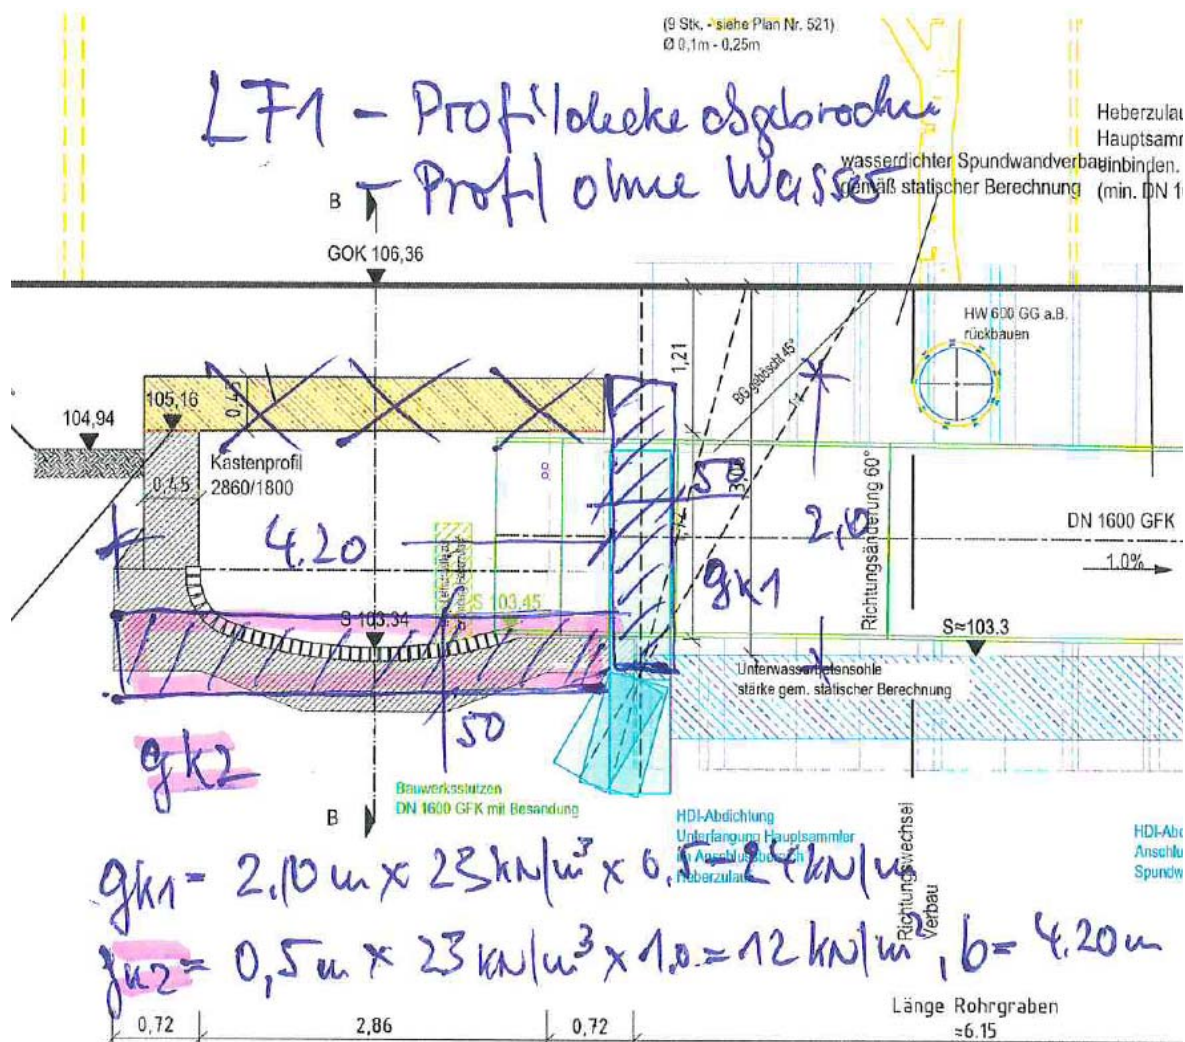 (9 Stk. - siehe Plan Nr. 521)
Ø 0,1m - 0,25m
LF1 - Profildecke abgebrochen
- Profil ohne Wasser
Heberzulau
Hauptsamm
einbinden.
(min. DN 1
wasserdichter Spundwandverbau
gemäß statischer Berechnung
B
GOK 106,36
HW 600 GG a.B.
rückbauen
1,21
BG geböscht 45°
1:1
105,16
0,45
104,94
Kastenprofil
2860/1800
0,45
50
4.20
2,10
gk1
Richtungsänderung 60°
DN 1600 GFK
1.0%
S 103,34
S 103,45
S≈103.3
Unterwasserbetonsohle
stärke gem. statischer Berechnung
50
gk2
Bauwerksstutzen
DN 1600 GFK mit Besandung
B
HDI-Abdichtung
Unterfangung Hauptsammler
im Anschlussbereich
Heberzulauf
Richtungswechsel
Verbau
HDI-Abd
Anschlu
Spundw
gk1 = 2,10 m x 23 kN/m³ x 0,5 = 24 kN/m
gk2 = 0,5 m x 23 kN/m³ x 1,0 = 12 kN/m², b = 4.20 m
0,72
2,86
0,72
Länge Rohrgraben
≈6.15